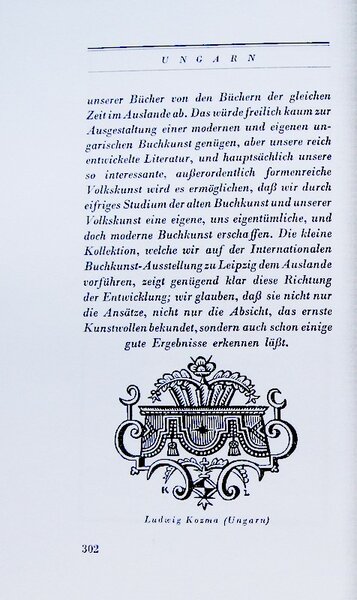 UNGARN
unserer Bücher von den Büchern der gleichen
Zeit im Auslande ab. Das würde freilich kaum zur
Ausgestaltung einer modernen und eigenen un-
garischen Buchkunst genügen, aber unsere reich
entwickelte Literatur, und hauptsächlich unsere
so interessante, außerordentlich formenreiche
Volkskunst wird es ermöglichen, daß wir durch
eifriges Studium der alten Buchkunst und unserer
Volkskunst eine eigene, uns eigentümliche, und
doch moderne Buchkunst erschaffen. Die kleine
Kollektion, welche wir auf der Internationalen
Buchkunst-Ausstellung zu Leipzig dem Auslande
vorführen, zeigt genügend klar diese Richtung
der Entwicklung; wir glauben, daß sie nicht nur
die Ansätze, nicht nur die Absicht, das ernste
Kunstwollen bekundet, sondern auch schon einige
gute Ergebnisse erkennen läßt.
K L
Ludwig Kozma (Ungarn)
302